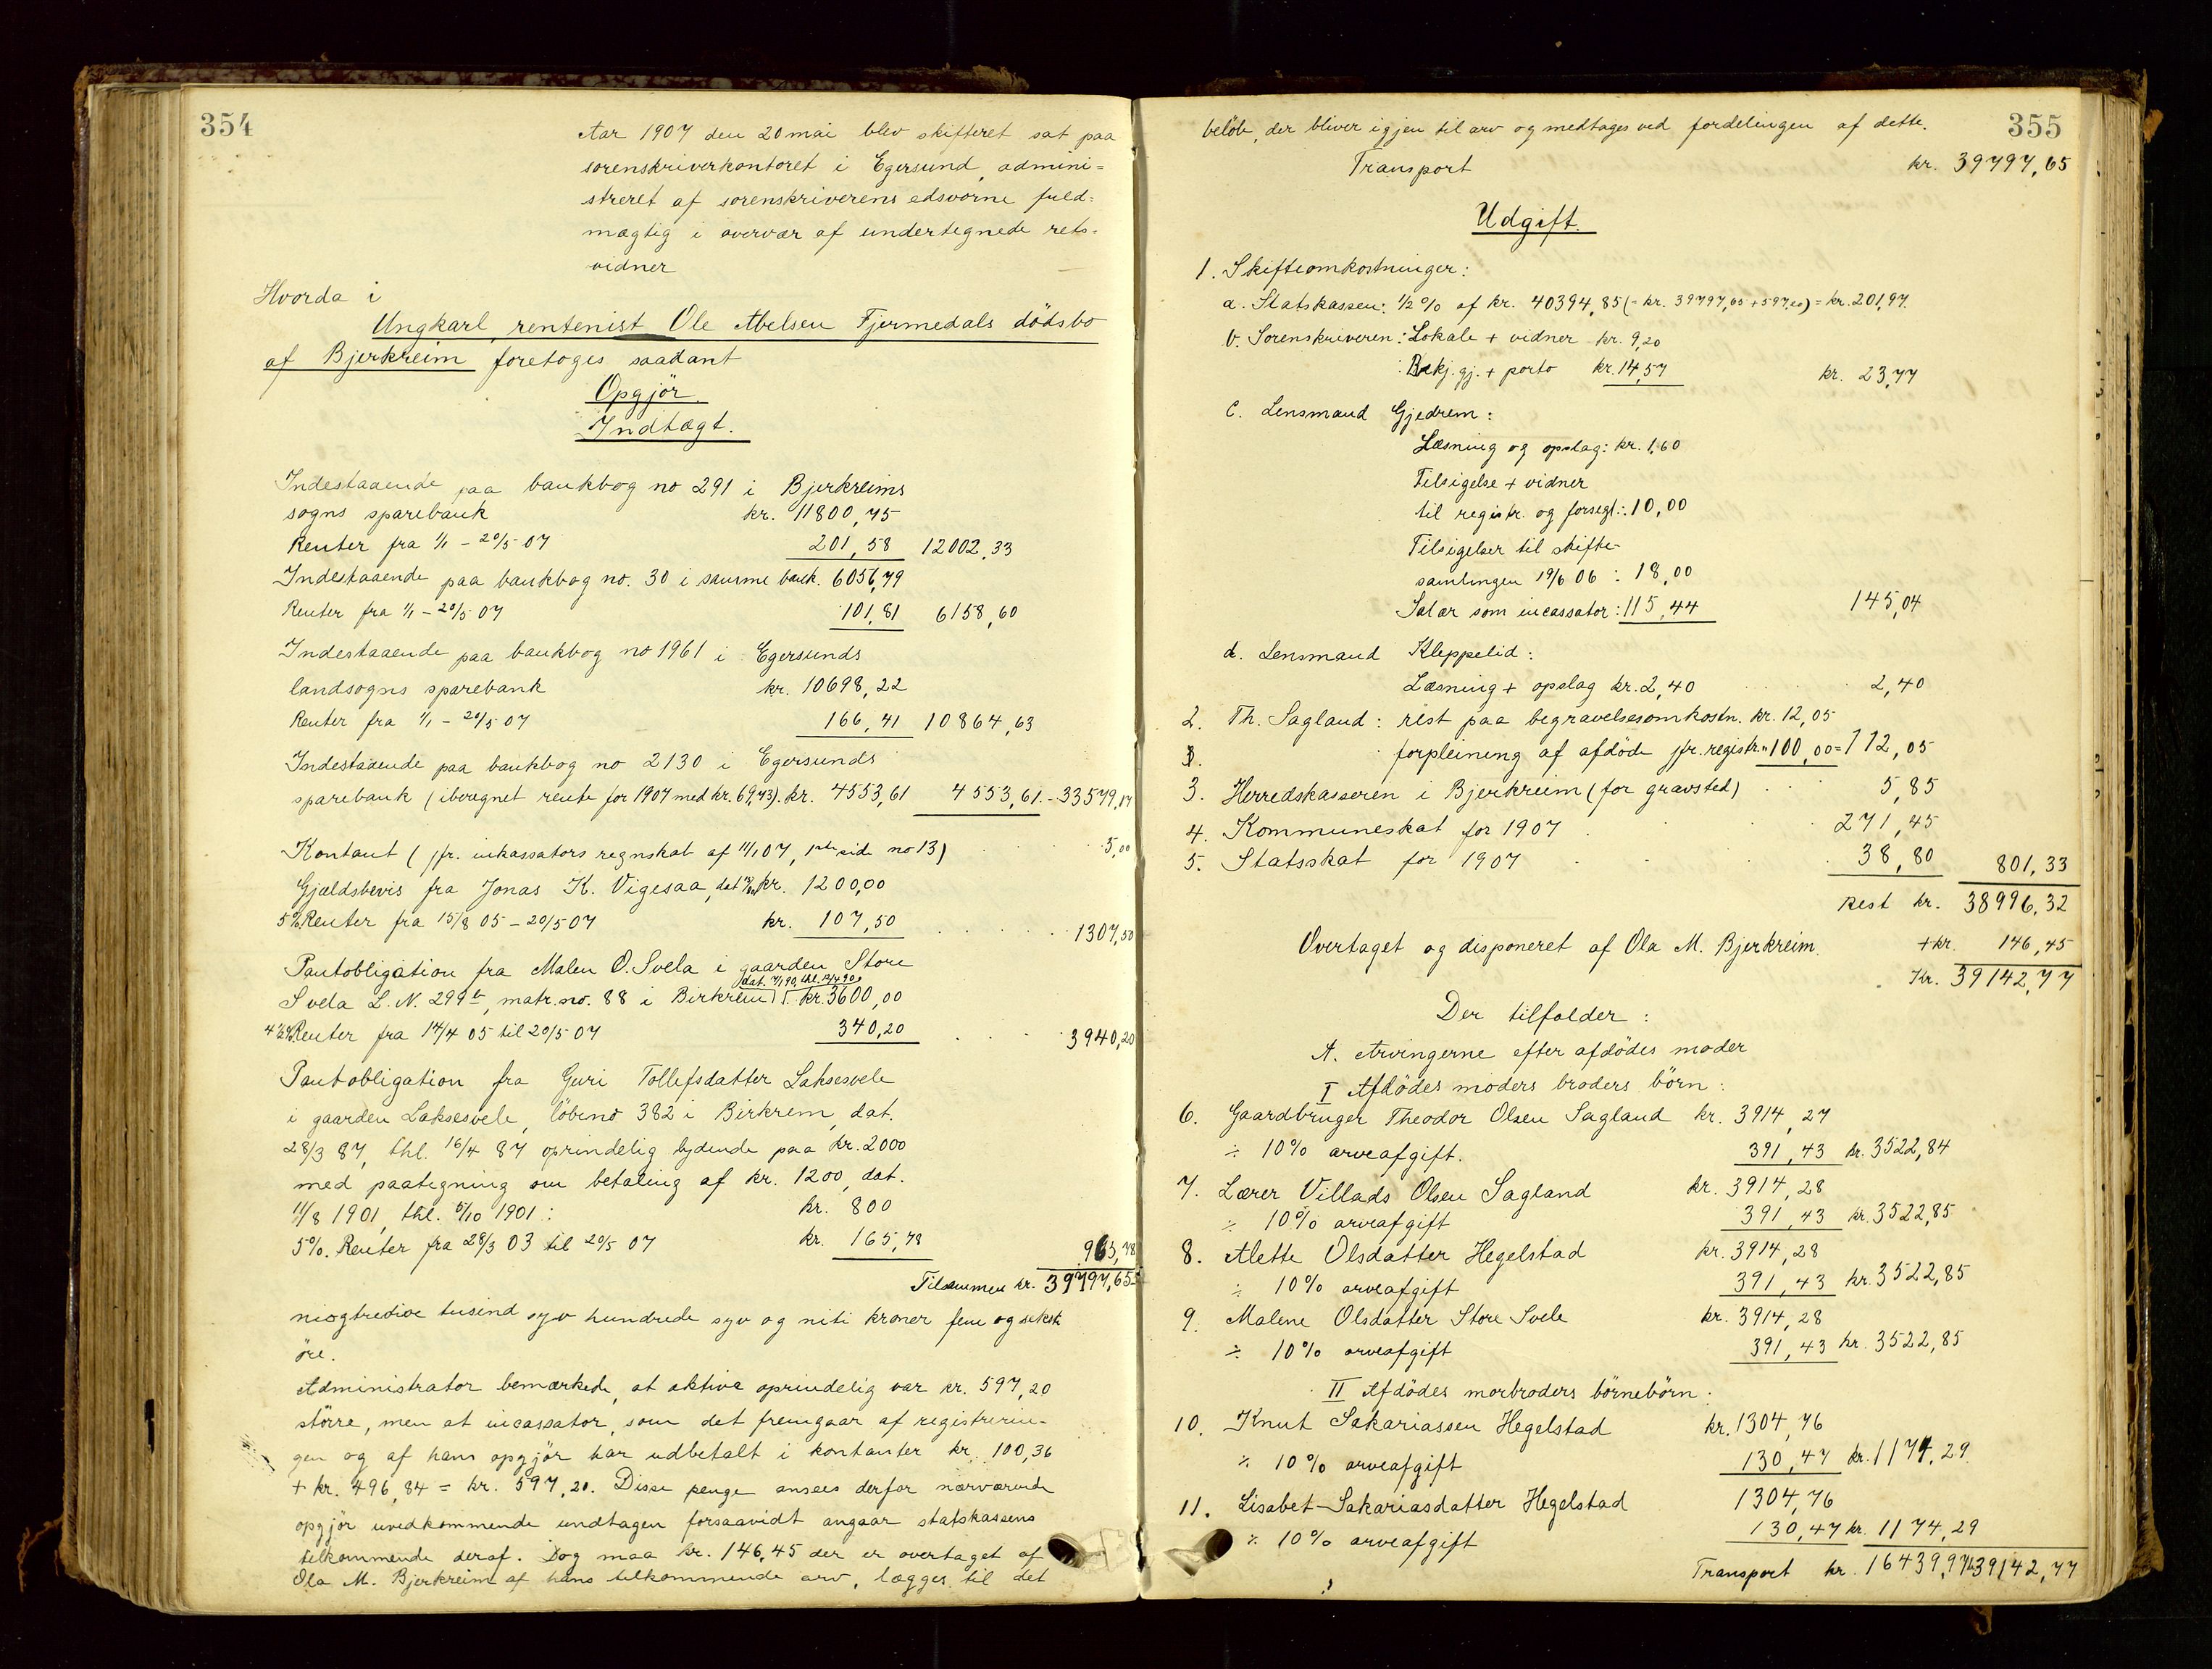 354
Aar 1907 den 20 mai blev skifteret sat paa
sorenskriverkontoret i Egersund, admini=
streret af sorenskriverens edsvorne fuld=
mægtig i overvær af undertegnede rets=
vidner
Hvorda i
Ungkarl, rentenist Ole Abelsen Fjermedals dödsbo
af Bjerkreim foretoges saadant
Opgjör.
Indtægt.
Indestaaende paa bankbog no 291 i Bjerkreims
sogns sparebank kr. 11800,75
Renter fra 1/1 - 20/5 07 201,58 12002,33
Indestaaende paa bankbog no. 30 i samme bank. 6056,79
Renter fra 1/1 - 20/5 07 101,81 6158,60
Indestaaende paa bankbog no 1961 i Egersunds
landsogns sparebank kr. 10698,22
Renter fra 1/1 - 20/5 07 166,41 10864,63
Indestaaende paa bankbog no 2130 i Egersunds
sparebank (iberegnet rente for 1907 med kr. 69,43). kr. 4553,61 4553,61 - 33579,17
Kontant (jfr. inkassators regnskab af 11/1 07, 1ste side no 13) 5,00
Gjældsbevis fra Jonas K. Vigesaa, dat kr. 1200,00
5% Renter fra 15/8 05 - 20/5 07 kr. 107,50 1307,50
Pantobligation fra Malen O. Svela i gaarden Store
Svela L. N. 299 b, matr. no. 88 i Birkrem kr. 3600,00
4½% Renter fra 14/4 05 til 20/5 07 340,20 3940,20
Pantobligation fra Guri Tollefsdatter Laksesvele
i gaarden Laksesvele, löbeno 382 i Birkrem, dat.
28/3 87, thl. 16/4 87 oprindelig lydende paa kr. 2000
med paategning om betaling af kr. 1200, dat.
11/8 1901, thl. 5/10 1901: kr. 800
5%. Renter fra 28/3 03 til 20/5 07 kr. 165,78 965,78
Tilsammen kr. 39797,65
niogtredive tusind syv hundrede syv og niti kroner fem og seksti
öre.
Administrator bemærkede, at aktiva oprindelig var kr. 597,20
större, men at incassator, som det fremgaar af registrerin-
gen og af hans opgjör har udbetalt i kontanter kr. 100,36
+ kr. 496,84 = kr. 597,20. Disse penge ansees derfor nærværende
opgjör uvedkommende undtagen forsaavidt angaar statskassens
tilkommende deraf. Dog maa kr. 146,45 der er overtaget af
Ola M. Bjerkreim af hans tilkommende arv, lægges til det
355
belöb, der bliver igjen til arv og medtages ved fordelingen af dette.
Transport kr. 39797,65
Udgift.
1. Skifteomkostninger:
a. Statskassen: 1/2 % af kr. 40394,85 (= kr. 39797,65 + 597,20) = kr. 201,97.
b. Sorenskriveren: Lokale + vidner kr. 9,20
: Bekj. gj. + porto kr. 14,57 kr. 23,77
c. Lensmand Gjedrem:
Læsning og opslag: kr. 1,60
Tilsigelse + vidner
til registr. og forsegl.: 10,00
Tilsigelser til skifte-
samlingen 19/6 06: 18,00
Salær som incassator: 115,44 145,04
d. Lensmand Kleppelid:
Læsning + opslag kr. 2,40 2,40
2. Th. Sagland: rest paa begravelsesomkostn. kr. 12,05
3. forpleining af afdöde jfr. registr. " 100,00 = 112,05
3. Herredskasseren i Bjerkreim (for gravsted) 5,85
4. Kommuneskat for 1907 271,45
5. Statsskat for 1907 38,80 801,33
Rest kr. 38996,32
Overtaget og disponeret af Ola M. Bjerkreim. + kr. 146,45
Kr. 39142,77
Der tilfalder:
A. Arvingerne efter afdödes moder
I Afdödes moders broders börn:
6. Gaardbruger Theodor Olsen Sagland kr. 3914,27
÷ 10% arveafgift. 391,43 kr. 3522,84
7. Lærer Villads Olsen Sagland kr. 3914,28
÷ 10% arveafgift 391,43 kr. 3522,85
8. Alette Olsdatter Hegelstad kr. 3914,28
÷ 10% arveafgift 391,43 kr. 3522,85
9. Malene Olsdatter Store Svele kr. 3914,28
÷ 10% arveafgift 391,43 kr. 3522,85
II Afdödes morbroders börnebörn:
10. Knut Sakariassen Hegelstad kr. 1304,76
÷ 10% arveafgift 130,47 kr. 1174,29
11. Lisabet Sakariasdatter Hegelstad 1304,76
÷ 10% arveafgift 130,47 kr. 1174,29
Transport kr. 16439,97 39142,77